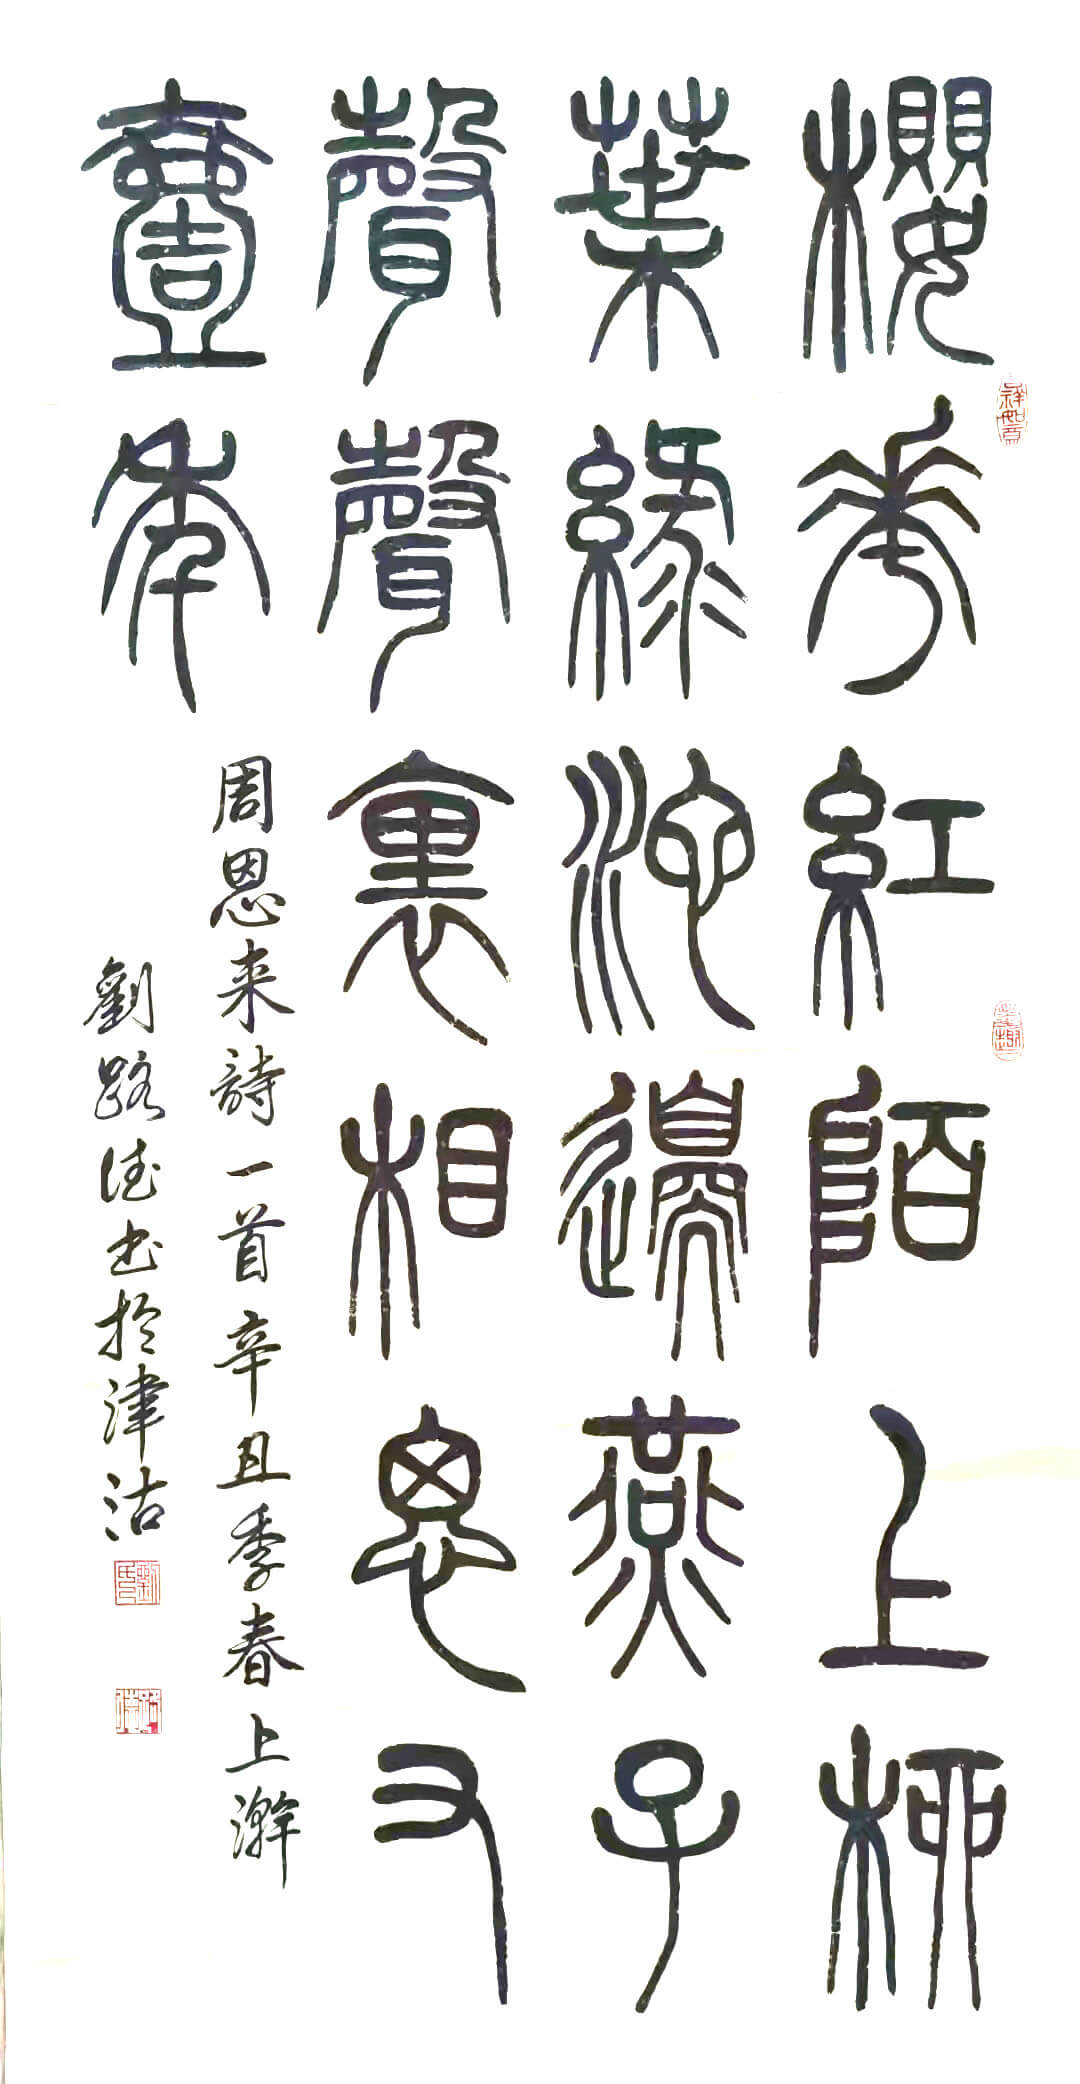 櫻花紅陌上柳
葉綠池邊燕子
聲聲裏相思又
壹年
周恩来詩一首辛丑季春上澣
劉路德书於津沽